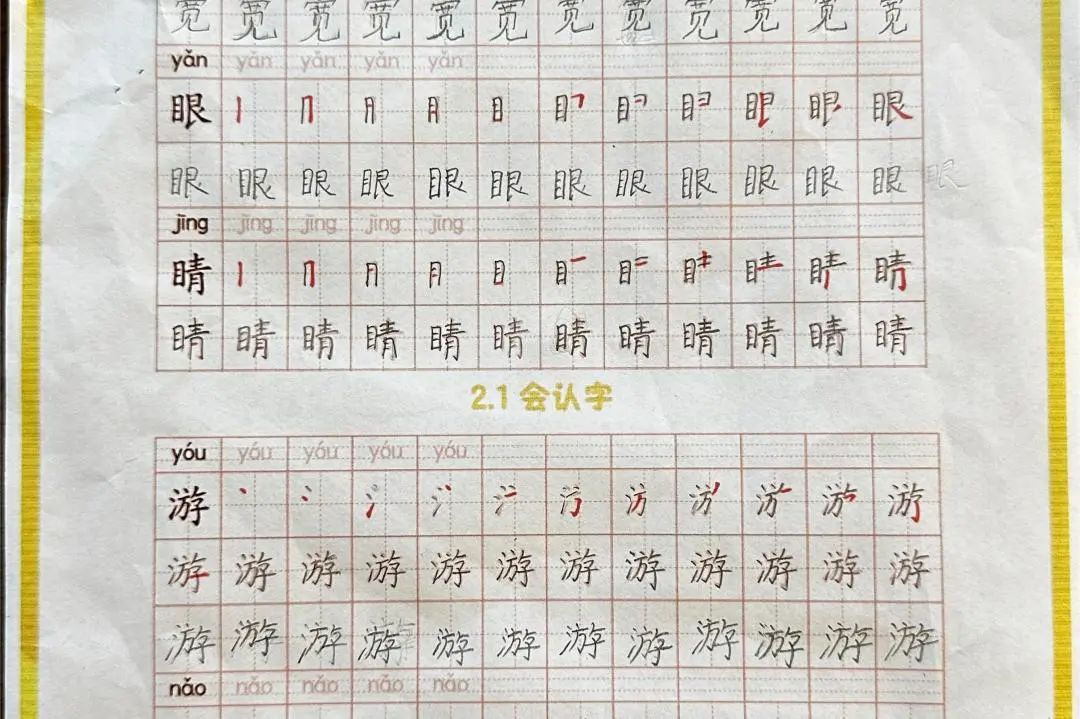 宽 宽 宽 宽 宽 宽 宽 宽 宽 宽 宽 宽
yǎn yǎn yǎn yǎn yǎn
眼 丨 冂 月 月 目 眼
眼 眼 眼 眼 眼 眼 眼 眼 眼 眼 眼 眼 眼
jīng jīng jīng jīng jīng
睛 丨 冂 月 月 目 睛
睛 睛 睛 睛 睛 睛 睛 睛 睛 睛 睛 睛
2.1 会认字
yóu yóu yóu yóu yóu
游 丶 冫 氵 游
游 游 游 游 游 游 游 游 游 游 游 游
游 游 游 游 游 游 游 游 游 游 游 游
nǎo nǎo nǎo nǎo nǎo